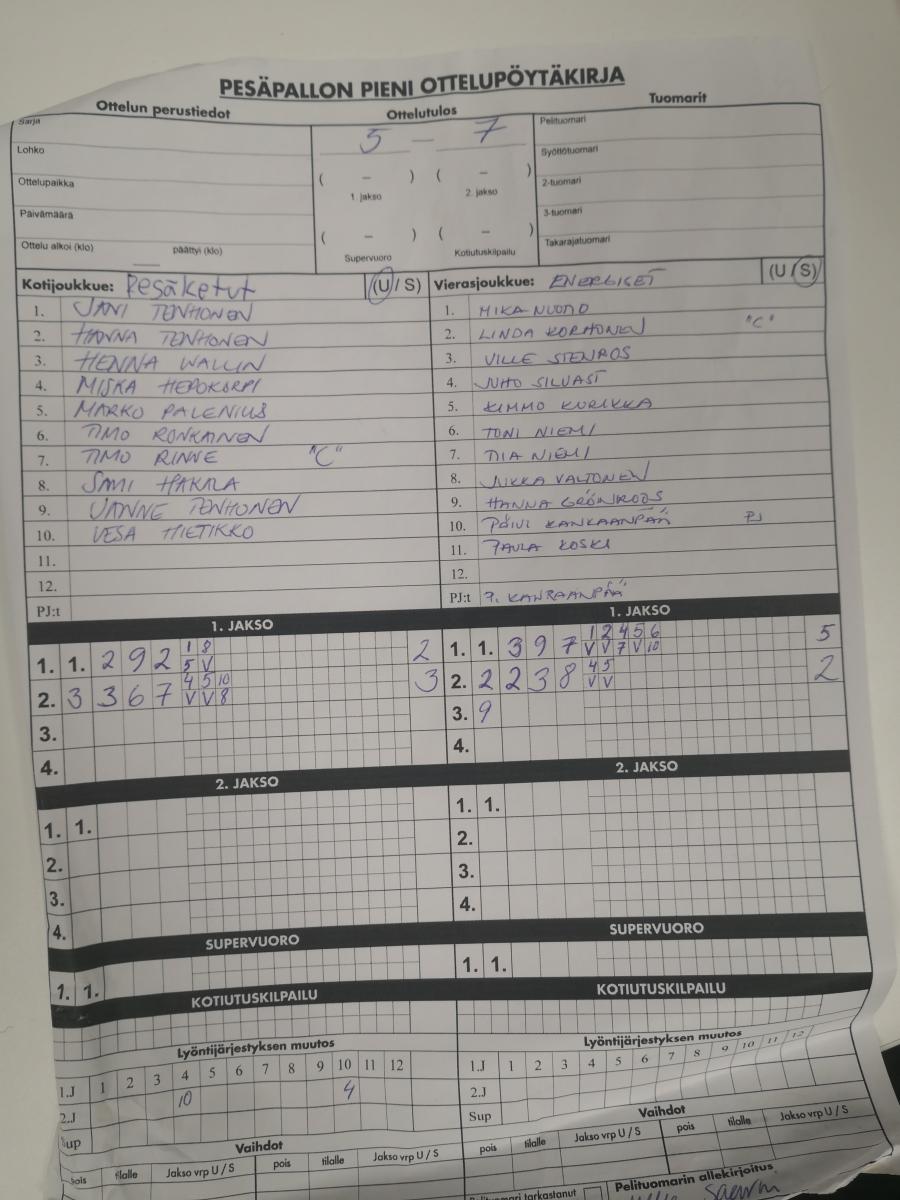 PESÄPALLON PIENI OTTELUPÖYTÄKIRJA
Ottelun perustiedot
Ottelutulos
Tuomarit
Sarja
Lohko
Ottelupaikka
Päivämäärä
Ottelu alkoi (klo) päättyi (klo)
5 – 7
( – ) ( – )
1. jakso 2. jakso
( – ) ( – )
Supervuoro Kotiutuskilpailu
Pelituomari
Syöttötuomari
2-tuomari
3-tuomari
Takarajatuomari
Kotijoukkue: Pesäketut (U / S)
1. JANI TENHONEN
2. HANNA TENHONEN
3. HENNA WALLIN
4. MISKA HEPOKORPI
5. MARKO PALENIUS
6. TIMO RONKAINEN
7. TIMO RINNE "C"
8. SAMI HAKALA
9. JANNE TENHONEN
10. VESA HIETIKKO
11.
12.
PJ:t
Vierasjoukkue: ENERGISET (U / S)
1. MIKA NUOTIO
2. LINDA KORHONEN "C"
3. VILLE STENROS
4. JUHO SILVAST
5. KIMMO KURIKKA
6. TONI NIEMI
7. TIIA NIEMI
8. JUKKA VALTONEN
9. HANNA GRÖNROOS
10. PÄIVI KANKAANPÄÄ PJ
11. PAULA KOSKI
12.
PJ:t P. KANKAANPÄÄ
1. JAKSO
1. 1. 2 9 2 1 8 2
5 V
2. 3 3 6 7 4 5 10 3
V V 8
3.
4.
1. JAKSO
1. 1. 3 9 7 1 2 4 5 6 5
V V 7 V 10
2. 2 2 3 8 4 5 2
V V
3. 9
4.
2. JAKSO
1. 1.
2.
3.
4.
2. JAKSO
1. 1.
2.
3.
4.
SUPERVUORO
1. 1.
SUPERVUORO
1. 1.
KOTIUTUSKILPAILU
KOTIUTUSKILPAILU
Lyöntijärjestyksen muutos
1.J 1 2 3 4 5 6 7 8 9 10 11 12
2.J 10 4
Sup
Lyöntijärjestyksen muutos
1.J 1 2 3 4 5 6 7 8 9 10 11 12
2.J
Sup
Vaihdot
pois tilalle Jakso vrp U / S pois tilalle Jakso vrp U / S
Vaihdot
pois tilalle Jakso vrp U / S pois tilalle Jakso vrp U / S
Pelituomari tarkastanut
Pelituomarin allekirjoitus